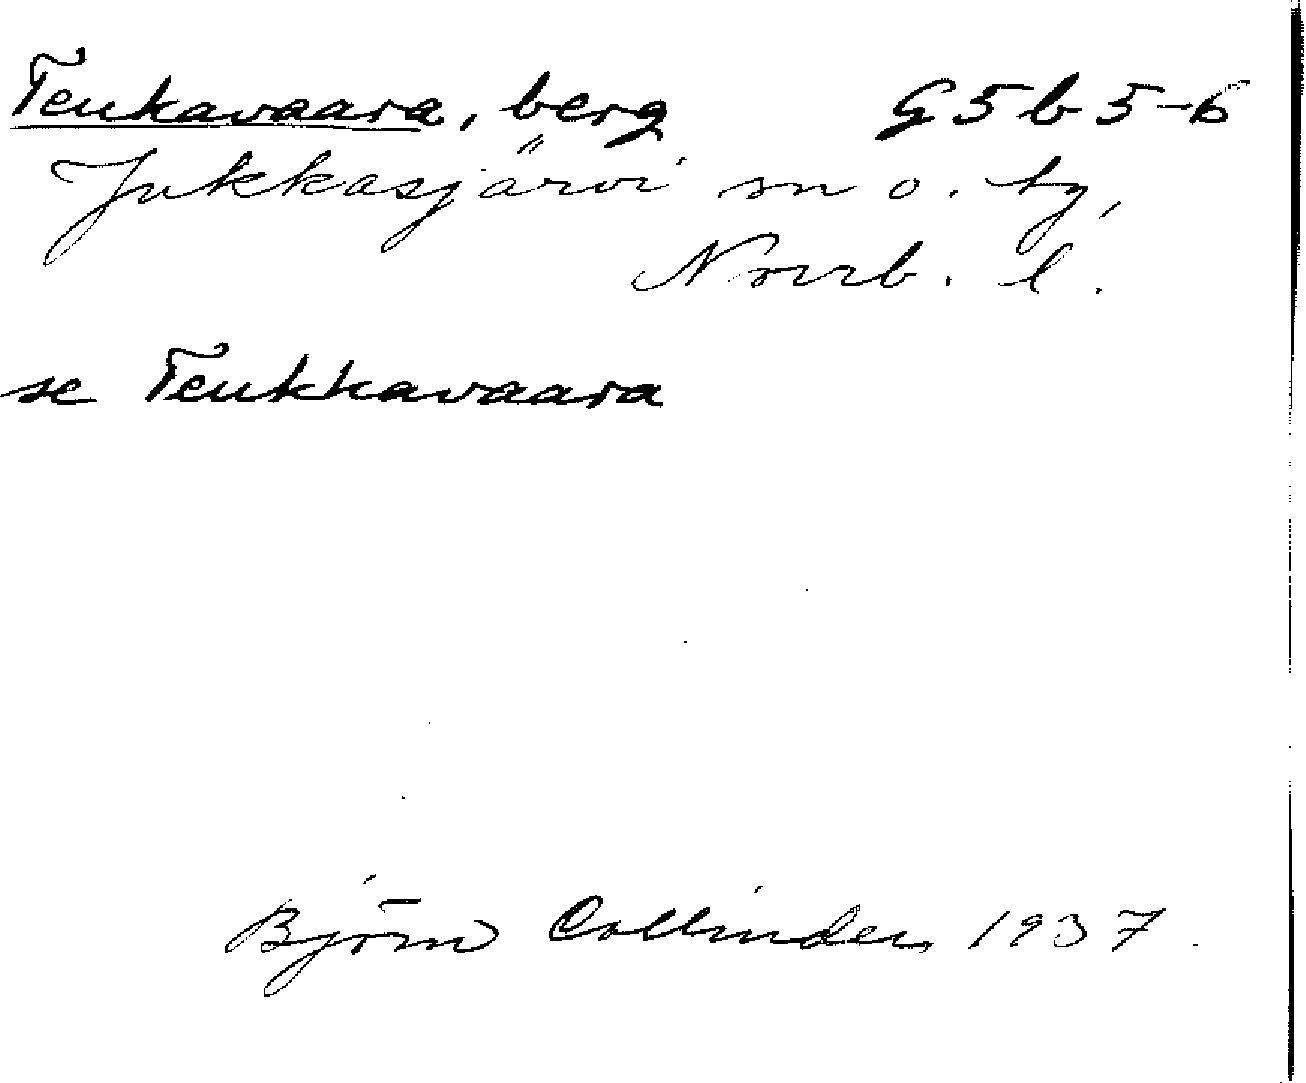 Teukavaara, berg G5b5-6
Jukkasjärvi sn o. tg,
Norrb. l.
se Teukkavaara
Björn Collinder 1937.